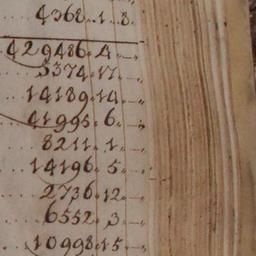 4368.1.8.
429486.4.—
5374.17.—
14189.14.—
41995.6.—
8211.1.—
14196.5.—
2736.12.—
6552.3.—
10998.15.—